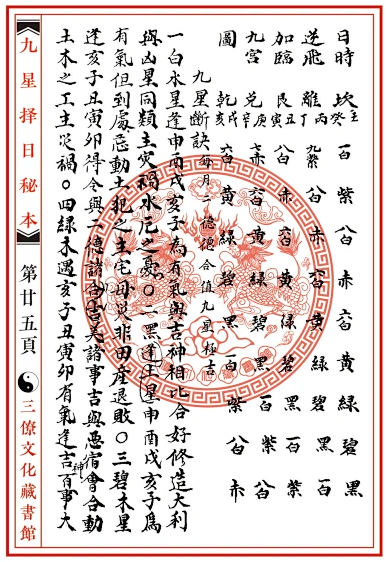 日時 坎壬癸 一白 紫 八白 赤 六白 黄 綠 碧 黑
逆飛 離丙丁 九紫 八白 赤 六白 黄 綠 碧 黑 一白
加臨 艮丑寅 八白 赤 六白 黄 綠 碧 黑 一白 紫
九宮 兌庚辛 七赤 六白 黄 綠 碧 黑 一白 紫 八白
圖 乾戌亥 六白 黄 綠 碧 黑 一白 紫 八白 赤
九星斷訣 每月二德合值九星極吉
一白水星逢申酉戌亥子為有氣與吉神相比合好修造大利
與凶星同類主灾禍水厄之憂〇二黑逢土星申酉戌亥子為
有氣但到處忌動土犯之主宅母災非田産退敗〇三碧木星
逢亥子丑寅卯得令與二德諸合吉美諸事吉與惡宿會合動
土木之工主災禍〇四綠木遇亥子丑寅卯有氣逢吉神百事大
九星择日秘本
第廿五頁
三僚文化藏書館